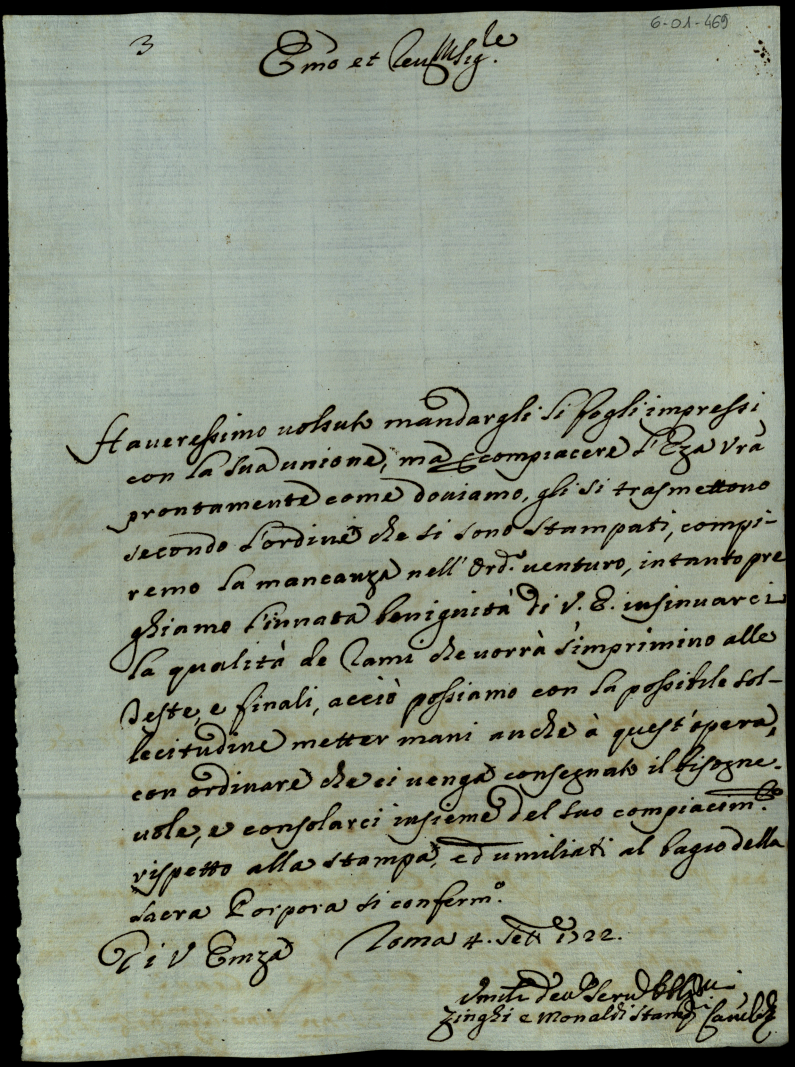 6-01-469
3
Emo et Reu Sig.re
Haueressimo uolsuto mandargli li fogli impressi
con la sua unione, ma compiacere l'Eza Vrã
prontamente come douiamo, gli si trasmettono
secondo l'ordine che si sono stampati, compi-
remo la mancanza nell'Ord.º venturo, in tanto pre
ghiamo l'innata benignità di V. E. insinuarci
la qualità de Rami che uorrà s'imprimino alle
Teste, e finali, acciò possiamo con la possibile sol-
lecitudine metter mani anche à quest'opera,
con ordinare che ci uenga consegnato il bisogne-
uole, e consolarci insieme del suo compiacim.to
rispetto alla stampa, ed umiliati al bagio della
sacra Porpora si conferm.º
Di V Emza Roma 4. Sett.e 1722.
Zinghi e Monaldi Stamp.i